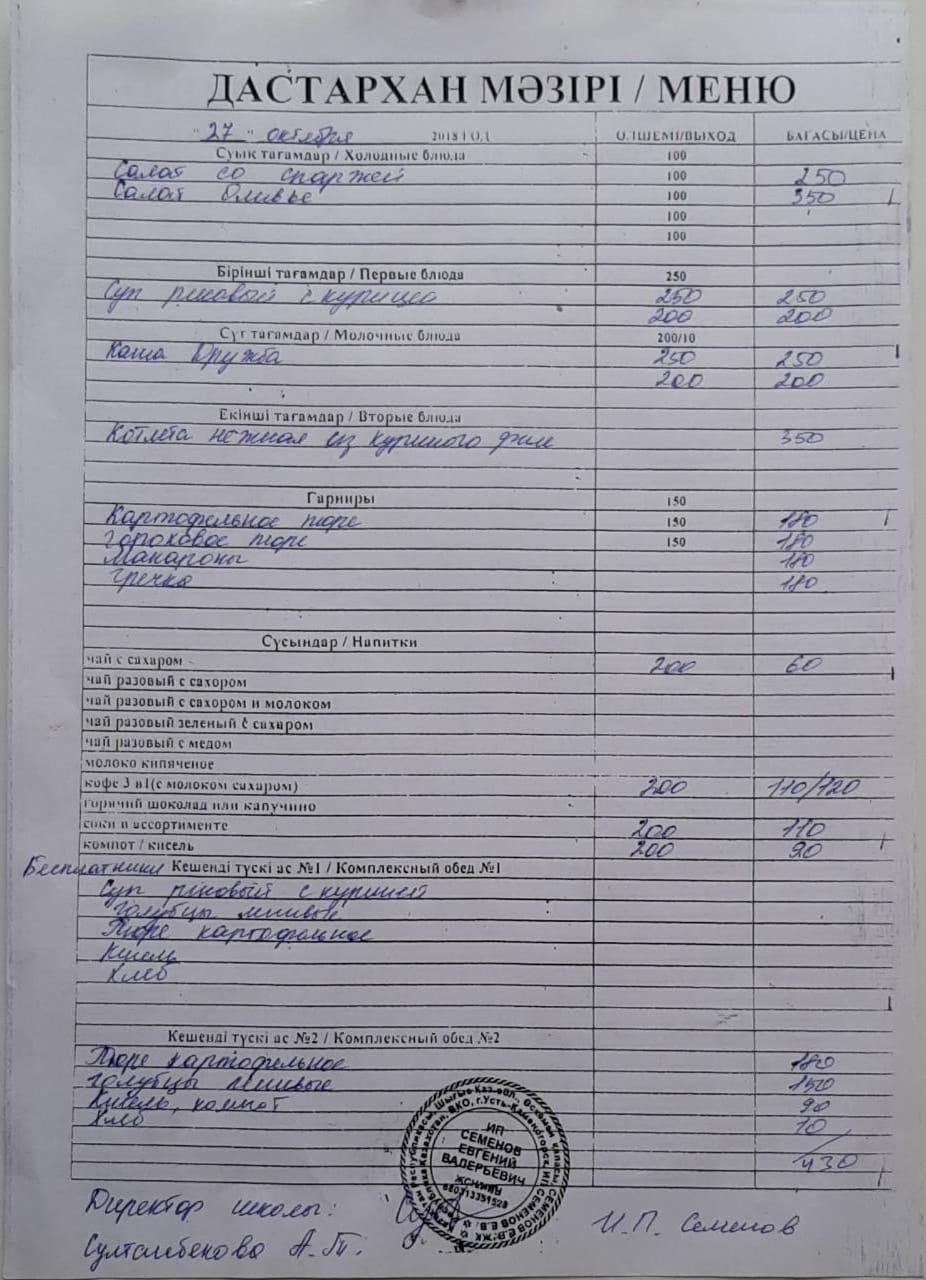 ДАСТАРХАН МӘЗІРІ / МЕНЮ
"27" октября 2018 ГОД Ө.ЛШЕМІ/ВЫХОД БАҒАСЫ/ЦЕНА
Суық тағамдар / Холодные блюда 100
Салат со спаржей 100 250
Салат Оливье 100 350
100
100
Бірінші тағамдар / Первые блюда 250
Суп рисовый с курицей 250 250
200 200
Сүт тағамдар / Молочные блюда 200/10
Каша Дружба 250 250
200 200
Екінші тағамдар / Вторые блюда
Котлета нежная из куриного филе 350
Гарниры 150
Картофельное пюре 150 180
Гороховое пюре 150 180
Макароны 180
Гречка 180
Сусындар / Напитки
чай с сахаром 200 60
чай разовый с сахором
чай разовый с сахором и молоком
чай разовый зеленый с сахаром
чай разовый с медом
молоко кипяченое
кофе 3 в1(с молоком сахаром) 200 110/120
горячий шоколад или капучино
соки в ассортименте 200 110
компот / кисель 200 90
Бесплатники Кешенді түскі ас №1 / Комплексный обед №1
Суп рисовый с курицей
Голубцы ленивые
Пюре картофельное
Кисель
Хлеб
Кешенді түскі ас №2 / Комплексный обед №2
Пюре картофельное 180
Голубцы ленивые 150
Кисель, компот 90
Хлеб 10
430
ИП
СЕМЕНОВ
ЕВГЕНИЙ
ВАЛЕРЬЕВИЧ
Директор школы:
Султанбекова А.Т.
И.П. Семенов